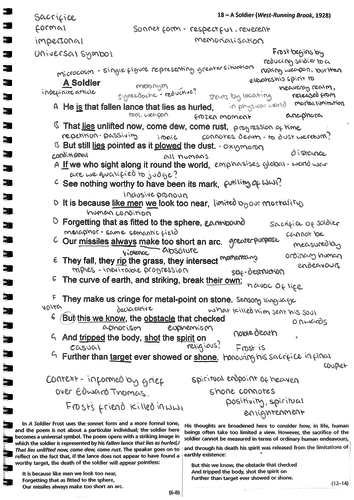 Sacrifice
18 – A Soldier (West-Running Brook, 1928)
formal
Sonnet form - respectful, reverent
impersonal
memorialisation
Universal symbol
Frost begins by
reducing soldier to a
microcosm - single figure representing greater situation
roping weapon, but then
metonym
elevates his spirit to
A Soldier
synecdoche - reductive?
heavenly realm,
indefinite article
starts by locating
released from
in physical world
mortal limitation
A He is that fallen lance that lies as hurled,
anaphora
tool, weapon
frozen moment
B That lies unlifted now, come dew, come rust,
progression of time
repetition - passivity
ironic
connotes death - to dust we return?
B But still lies pointed as it plowed the dust.
- oxymoron
conditional
all humans
distance
A If we who sight along it round the world,
emphasises global - world war
are we qualified to judge?
C See nothing worthy to have been its mark,
futility of WWI?
inclusive pronoun
D It is because like men we look too near,
limited by our mortality
human condition
D Forgetting that as fitted to the sphere,
earthbound
Sacrifice of soldier
metaphor - same semantic field
cannot be
C Our missiles always make too short an arc.
greater purpose
measured by
violence
absolute
ordinary human
E They fall, they rip the grass, they intersect
momentary
endeavours
triples - inevitable progression
self-destruction
F The curve of earth, and striking, break their own;
havoc of life
F They make us cringe for metal-point on stone.
sensory language
volta
declarative
what killed him sent his soul
E But this we know, the obstacle that checked
onwards
aphorism
euphemism
G And tripped the body, shot the spirit on
noble death
casual
religious?
Frost is
G Further than target ever showed or shone.
honouring his sacrifice in final
couplet
Context - informed by grief
spiritual endpoint of heaven
over Edward Thomas,
shone connotes
Frost's friend killed in WWI
positivity, spiritual
enlightenment
In A Soldier Frost uses the sonnet form and a more formal tone,
and the poem is not about a particular individual; the soldier here
becomes a universal symbol. The poem opens with a striking image in
which the soldier is represented by his fallen lance that lies as hurled,/
That lies unlifted now, come dew, come rust. The speaker goes on to
reflect on the fact that, if the lance does not appear to have found a
worthy target, the death of the soldier will appear pointless:
It is because like men we look too near,
Forgetting that as fitted to the sphere,
Our missiles always make too short an arc.
(6-8)
His thoughts are broadened here to consider how, in life, human
beings often take too limited a view. However, the sacrifice of the
soldier cannot be measured in terms of ordinary human endeavours,
and through his death his spirit was released from the limitations of
earthly existence:
But this we know, the obstacle that checked
And tripped the body, shot the spirit on
Further than target ever showed or shone.
(12-14)